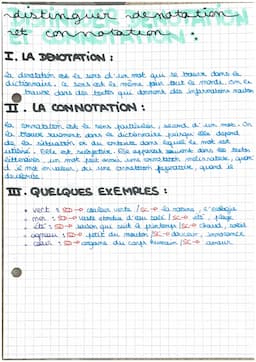 distinguer dénotation
et connotation.
I. LA DENOTATION :
La dénotation est le sens d'un mot qui se trouve dans le
dictionnaire. Ce sens est le même pour tout le monde. On le
trouve dans des textes qui donnent des informations
II. LA CONNOTATION :
La connotation est le sens particulier, second d'un mot. On
la trouve rarement dans le dictionnaire puisqu'elle dépend
de la situation ou du contexte dans lequel le mot est
utilisé. Elle est subjective. Elle apparaît souvent dans les textes
littéraires, un mot peut avoir une connotation méliorative, quand
il met en valeur, ou une connotation péjorative, quand il
dévalorise.
III. QUELQUES EXEMPLES :
vert : SD couleur verte / SC la nature, l'écologie
mer : SD vaste étendue d'eau salée / SC été, plage
été : SD saison qui suit le printemps / SC chaud, soleil
agneau : SD petit du mouton / SC douceur, innocence
cœur : SD organe du corps humain / SC amour